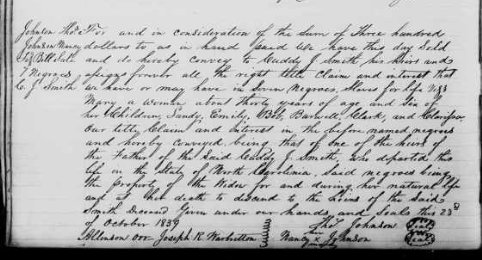 Johnson Thos For and in consideration of the sum of Three hundred
Johnson Nancy dollars to us in hand paid we have this day Sold
To} Bill Sale and do hereby convey to Cuddy J. Smith, his heirs and
7 Negroes assigns forever all the right title claim and interest that
C. J. Smith we have or may have in Seven Negroes, Slaves for life viz
Mary a woman about thirty years of age and Six of
her Children, Sandy, Emily, Bob, Barwell, Clark, and Clarissa
Our title, Claim and Interest in the before named negroes
and hereby conveyed being that of one of the heirs of
the Father of the Said Cuddy J. Smith, who departed this
life in the State of North Carolina. Said negroes being
the property of the Widow for and during her natural life
and at her death to descend to the heirs of the Said
Smith Deceased Given under our hands and Seals this 23d
of October 1839 Tho Johnson Seal
Joseph R Warbutton Nancy x Johnson Seal